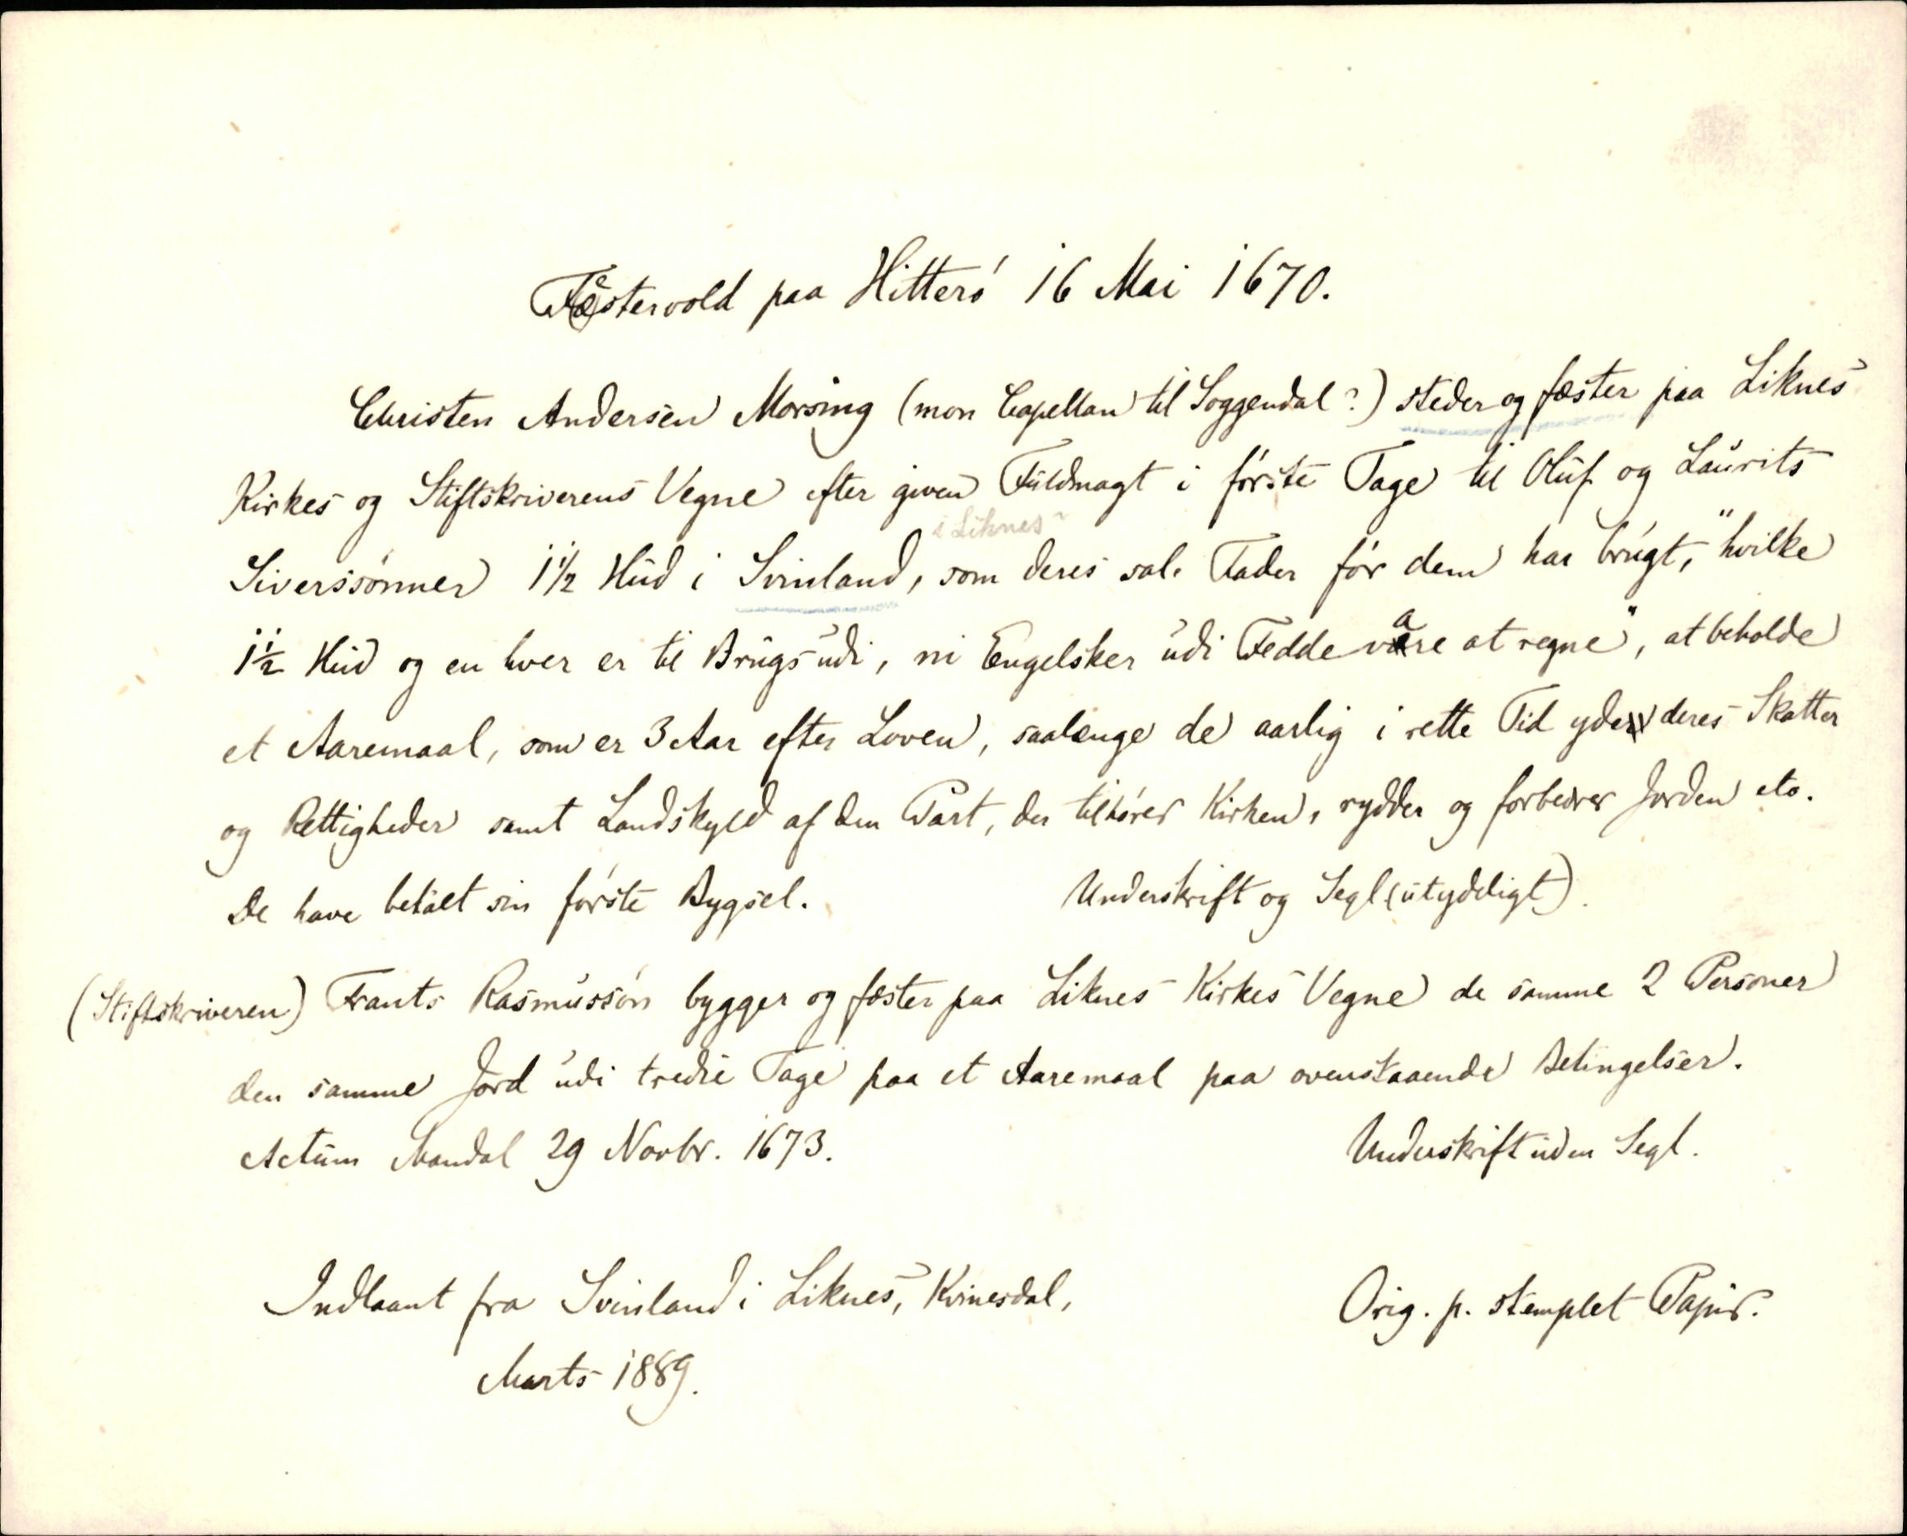 Fæstervold paa Hitterö 16 Mai 1670.
Christen Andersen Morsing (mon Capellan til Soggendal?) steder og fæster paa Liknes
Kirkes og Stiftskriverens Vegne efter given Fuldmagt i förste Tage til Oluf og Laurits
i Liknes
Siverssönner 1 1/2 Hud i Svinland, som deres sal. Fader för dem har brugt, "hvilke
1 1/2 Hud og en hver er til Brugs udi, ni Engelsker udi Fedde vare at regne", at beholde
et Aaremaal, som er 3 Aar efter Loven, saalænge de aarlig i rette Tid yde deres Skatter
og Rettigheder samt Landskyld af den Part, der tilhörer Kirken, rydder og forbedrer Jorden etc.
De have betalt sin förste Bygsel. Underskrift og Segl (utydeligt).
(Stiftskriveren) Frants Rasmussön bygger og fæster paa Liknes Kirkes Vegne de samme 2 Personer
den samme Jord udi tredie Tage paa et Aaremaal paa ovenstaaende Betingelser.
Actum Mandal 29 Novbr. 1673. Underskrift uden Segl.
Indlaant fra Svinland i Liknes, Kvinesdal, Orig. p. stemplet Papir.
Marts 1889.